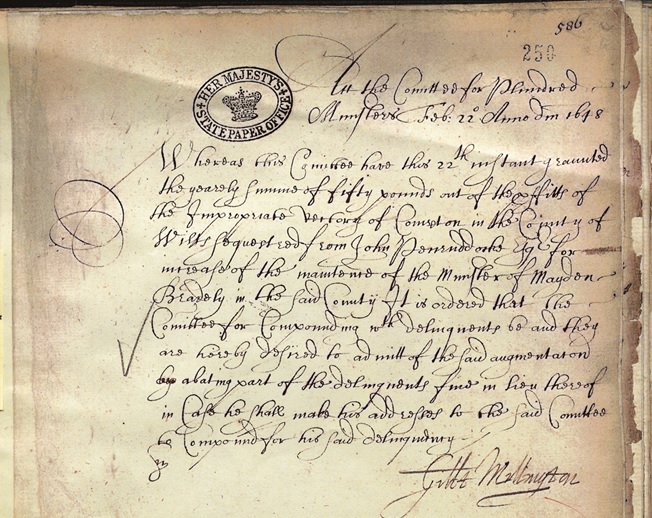 586
250
HER MAJESTY'S STATE PAPER OFFICE
Att the Comittee for Plundred
Ministers Feb: 22 Anno dm 1648
Whereas this Comittee have this 22th instant graunted
the yearely summe of fifty pounds out of the pffitts of
the Impropriate Rectory of Compton in the County of
Wilts sequestred from John Penruddocke Esqr for
increase of the maintence of the Minister of Mayden
Bradely in the said County It is ordered that the
Comittee for Compounding wth delinquents be and they
are hereby desired to admitt of the said augmentacon
by abating part of the delinquents fine in lieu thereof
in Case he shall make his addresses to the said Comittee
to Compound for his said delinquency
Gilbt Millington